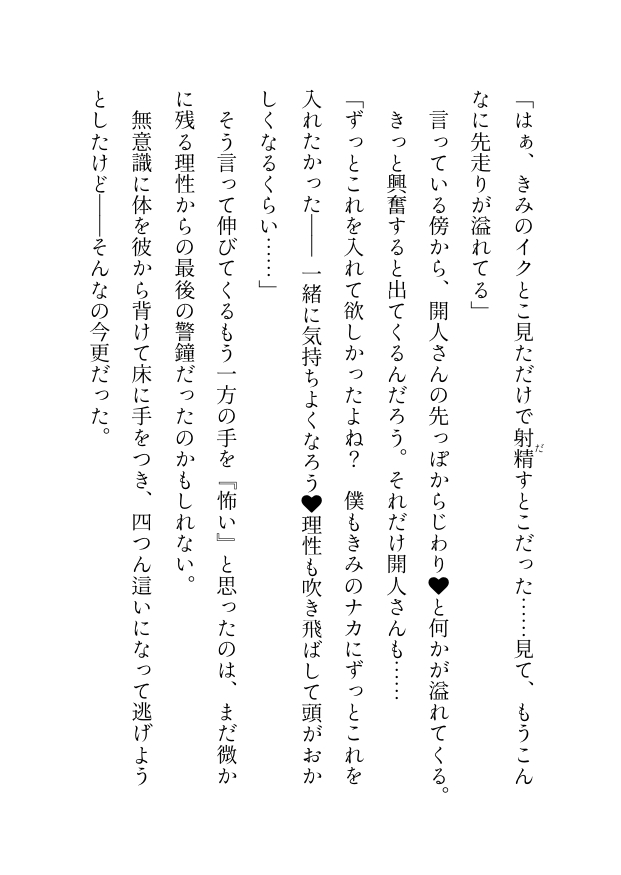 「はぁ、きみのイクとこ見ただけで射精すとこだった……見て、もうこん
だ
なに先走りが溢れてる」
言っている傍から、開人さんの先っぽからじわり♥と何かが溢れてくる。
きっと興奮すると出てくるんだろう。それだけ開人さんも……
「ずっとこれを入れて欲しかったよね？　僕もきみのナカにずっとこれを
入れたかった――一緒に気持ちよくなろう♥理性も吹き飛ばして頭がおか
しくなるくらい……」
そう言って伸びてくるもう一方の手を『怖い』と思ったのは、まだ微か
に残る理性からの最後の警鐘だったのかもしれない。
無意識に体を彼から背けて床に手をつき、四つん這いになって逃げよう
としたけど――そんなの今更だった。